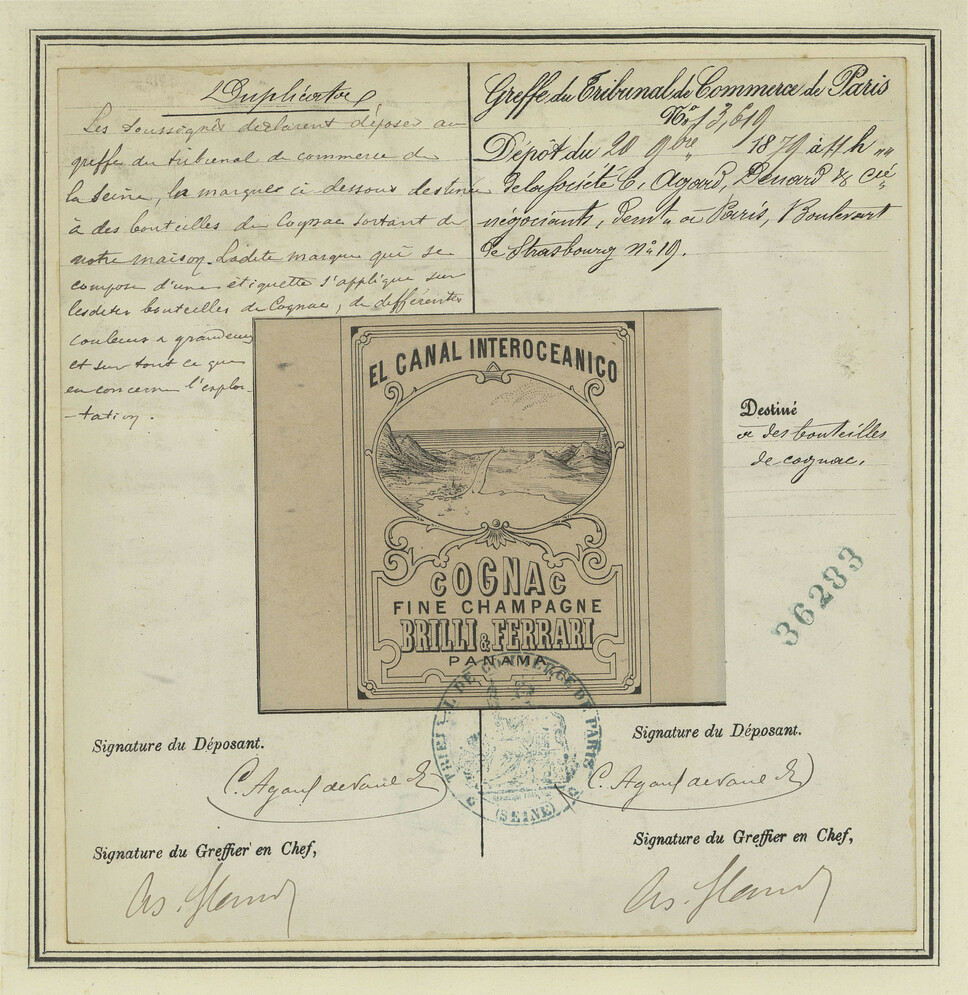 Duplicata
Les soussignés déclarent déposer au
greffe du tribunal de commerce de
la Seine, la marque ci dessous destinée
à des bouteilles de Cognac sortant de
notre maison. Ladite marque qui se
compose d'une étiquette s'applique sur
lesdites bouteilles de Cognac, de différentes
couleurs & grandeurs
et sur tout ce qui
en concerne l'exploi-
-tation.
Greffe du Tribunal de Commerce de Paris
No 13,619
Dépôt du 20 9bre 1879 à 11 h
De la Société C. Agard, Denard & Cie
négociants, demt à Paris, Boulevart
de Strasbourg no 19.
EL CANAL INTEROCEANICO
COGNAC
FINE CHAMPAGNE
BRILLI & FERRARI
PANAMA
Destiné
à des bouteilles
de cognac.
36283
TRIBUNAL DE COMMERCE DE PARIS
(SEINE)
Signature du Déposant.
C. Agard
Signature du Greffier en Chef,
Signature du Déposant.
C. Agard
Signature du Greffier en Chef,